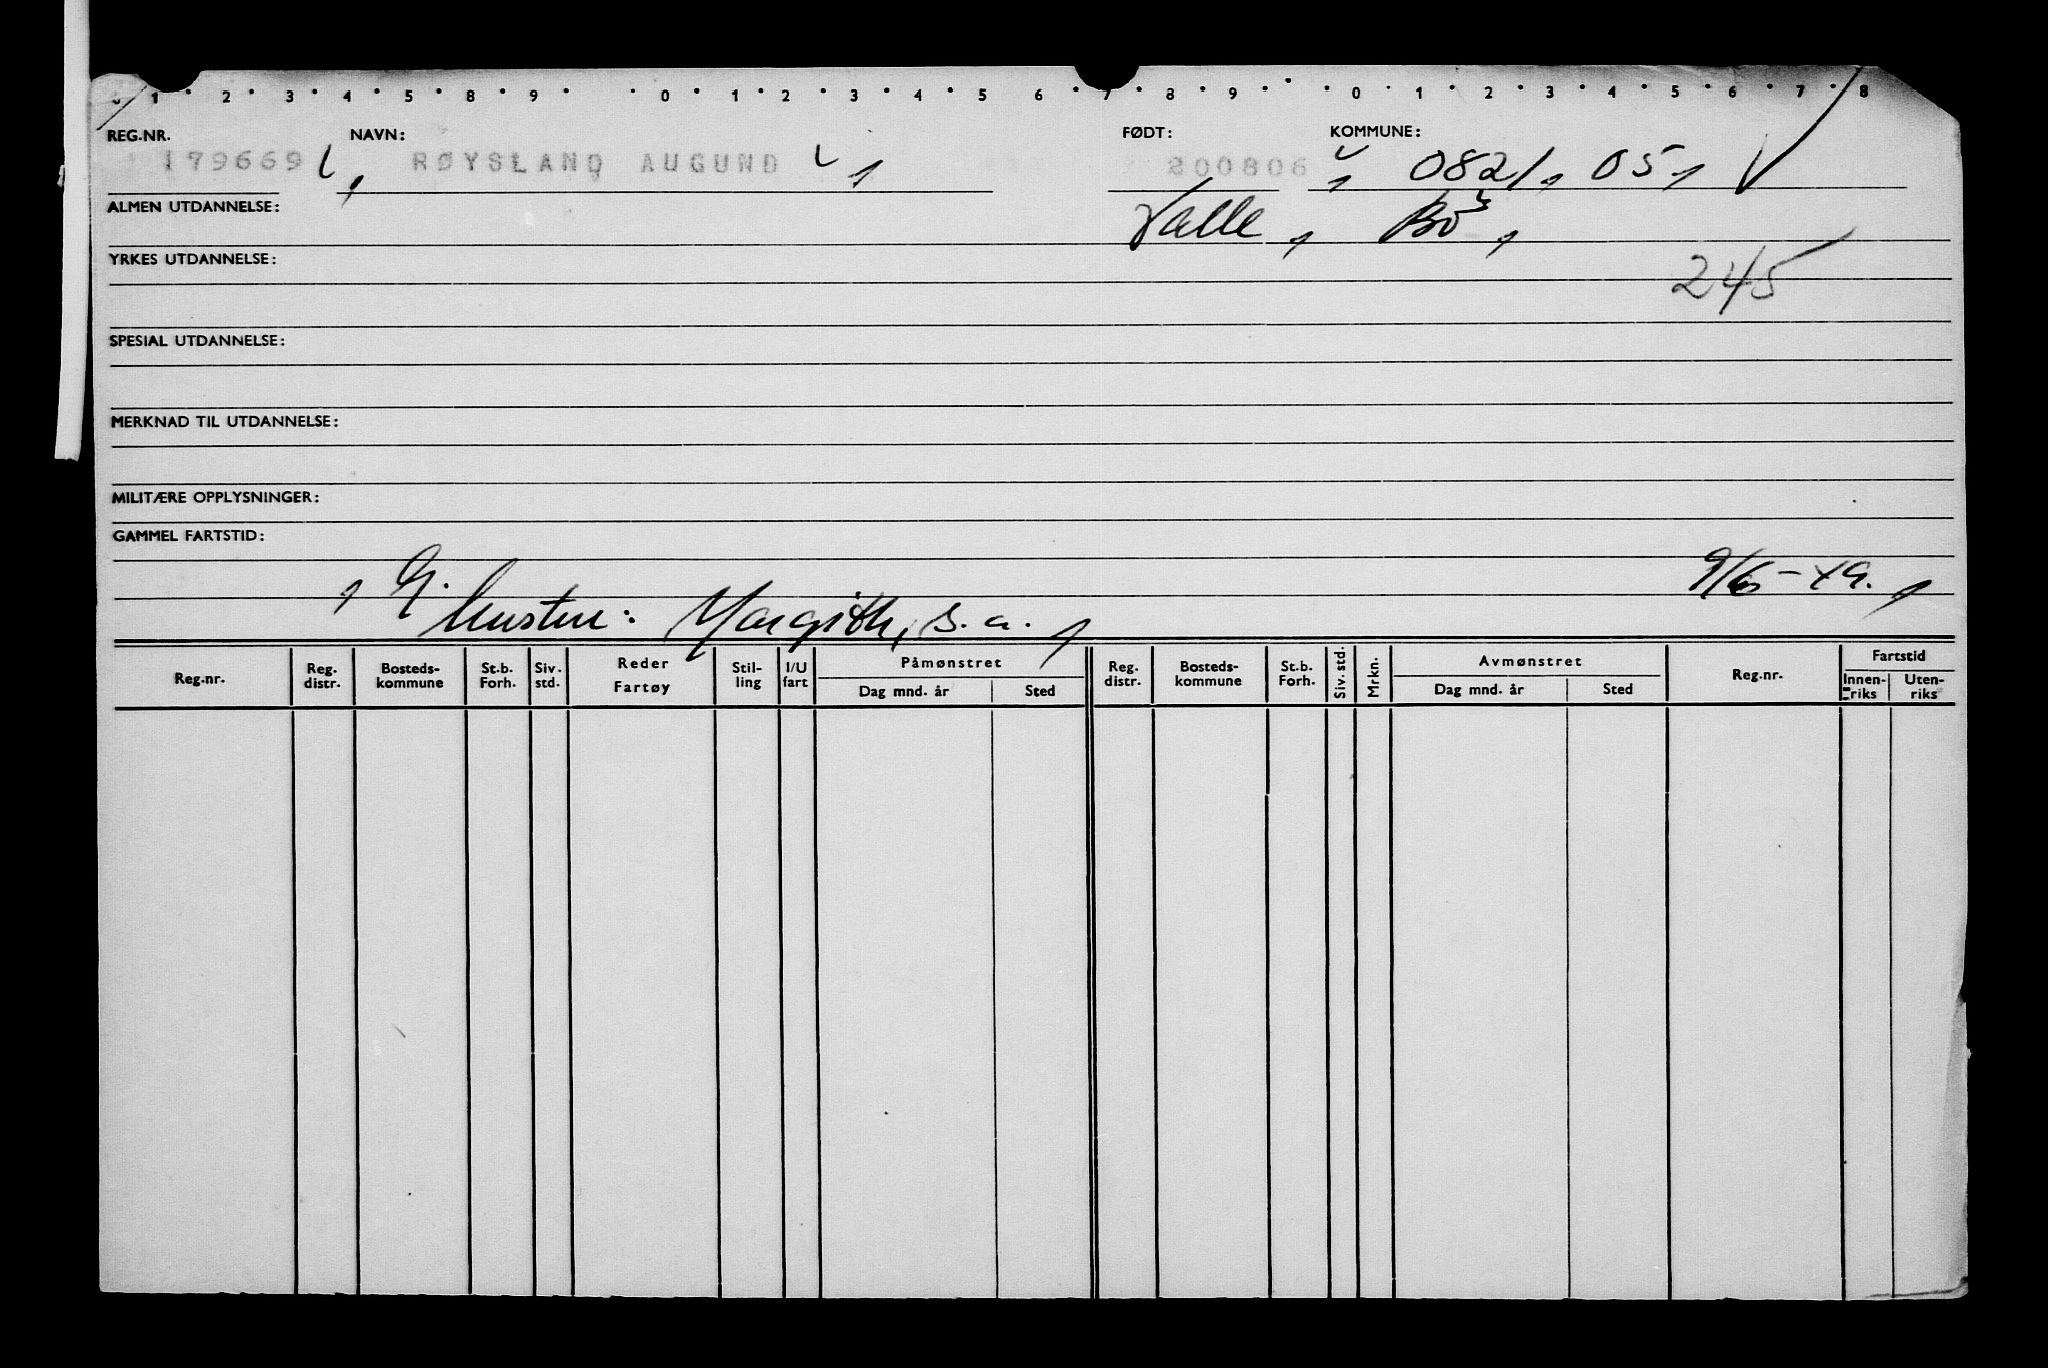 0 1 2 3 4 5 8 9 0 1 2 3 4 5 6 7 8 9 0 1 2 3 4 5 6 7 8
REG.NR. NAVN: FØDT: KOMMUNE:
179669 RØYSLAND AUGUND 200806 0821, 05,
ALMEN UTDANNELSE: Valle, Bö,
YRKES UTDANNELSE: 245
SPESIAL UTDANNELSE:
MERKNAD TIL UTDANNELSE:
MILITÆRE OPPLYSNINGER:
GAMMEL FARTSTID:
G. 9/6-49.
hustru: Margith, s.a.
Reg.nr. Reg. distr. Bosteds-kommune St.b. Forh. Siv. std. Reder Fartøy Stil-ling I/U fart Påmønstret Dag mnd. år Sted Reg. distr. Bosteds-kommune St.b. Forh. Siv. std. Mrkn. Avmønstret Dag mnd. år Sted Reg.nr. Fartstid Innen-riks Uten-riks